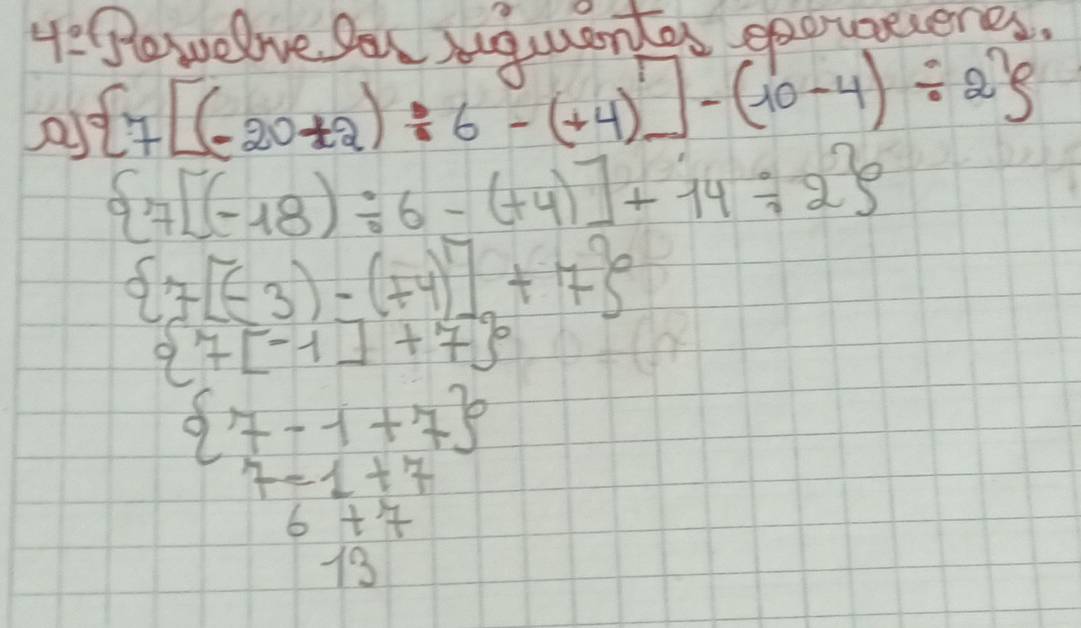 4º Resuelve las siguientes operaciones.
a) {7[(-20+2) ÷ 6 - (+4)] - (10-4) ÷ 2}
{7[(-18) ÷ 6 - (+4)] + 14 ÷ 2}
{7[(-3) - (+4)] + 7}
{7[-1] + 7}
{7 - 1 + 7}
7 - 1 + 7
6 + 7
13